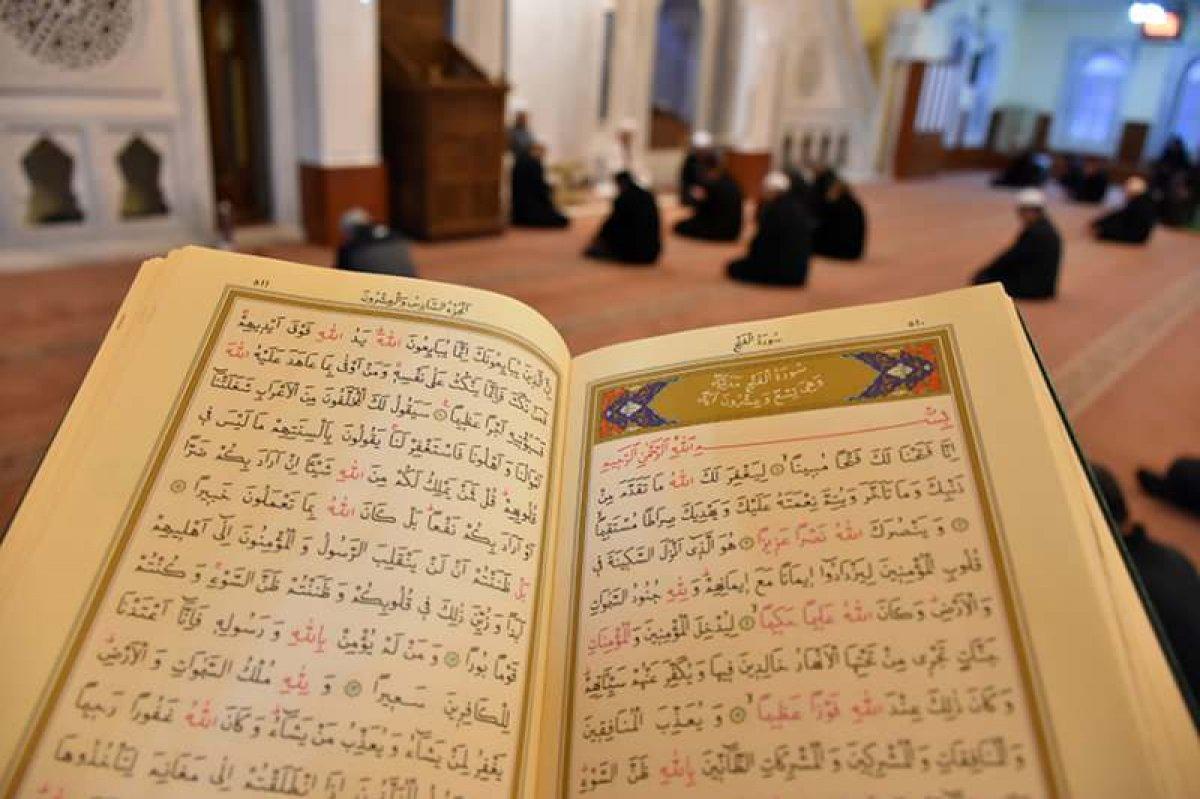 سُورَةُ الْفَتْحِ ٥١٠
سُورَةُ الْفَتْحِ مَدَنِيَّةٌ
وَهِيَ تِسْعٌ وَعِشْرُونَ اٰيَةً
بِسْمِ اللّٰهِ الرَّحْمٰنِ الرَّحِيمِ
اِنَّا فَتَحْنَا لَكَ فَتْحًا مُبِينًاۙ ١ لِيَغْفِرَ لَكَ اللّٰهُ مَا تَقَدَّمَ مِنْ
ذَنْبِكَ وَمَا تَاَخَّرَ وَيُتِمَّ نِعْمَتَهُ عَلَيْكَ وَيَهْدِيَكَ صِرَاطًا مُسْتَقِيمًاۙ
٢ وَيَنْصُرَكَ اللّٰهُ نَصْرًا عَزِيزًا ٣ هُوَ الَّذِٓي اَنْزَلَ السَّكِينَةَ فِي
قُلُوبِ الْمُؤْمِنِينَ لِيَزْدَادُٓوا اِيمَانًا مَعَ اِيمَانِهِمْۜ وَلِلّٰهِ جُنُودُ السَّمٰوَاتِ
وَالْاَرْضِۜ وَكَانَ اللّٰهُ عَلِيمًا حَكِيمًاۙ ٤ لِيُدْخِلَ الْمُؤْمِنِينَ وَالْمُؤْمِنَاتِ
جَنَّاتٍ تَجْرِي مِنْ تَحْتِهَا الْاَنْهَارُ خَالِدِينَ فِيهَا وَيُكَفِّرَ عَنْهُمْ سَيِّـَٔاتِهِمْۜ
وَكَانَ ذٰلِكَ عِنْدَ اللّٰهِ فَوْزًا عَظِيمًاۙ ٥ وَيُعَذِّبَ الْمُنَافِقِينَ
وَالْمُنَافِقَاتِ وَالْمُشْرِكِينَ وَالْمُشْرِكَاتِ الظَّٓانِّينَ بِاللّٰهِ ظَنَّ السَّوْءِۜ
الْجُزْءُ السَّادِسُ وَالْعِشْرُونَ ٥١١
اِنَّ الَّذِينَ يُبَايِعُونَكَ اِنَّمَا يُبَايِعُونَ اللّٰهَۜ يَدُ اللّٰهِ فَوْقَ اَيْدِيهِمْۚ
فَمَنْ نَكَثَ فَاِنَّمَا يَنْكُثُ عَلٰى نَفْسِهِۚ وَمَنْ اَوْفٰى بِمَا عَاهَدَ عَلَيْهُ اللّٰهَ
فَسَيُؤْتِيهِ اَجْرًا عَظِيمًا۟ ١٠ سَيَقُولُ لَكَ الْمُخَلَّفُونَ مِنَ الْاَعْرَابِ شَغَلَتْنَٓا
اَمْوَالُنَا وَاَهْلُونَا فَاسْتَغْفِرْ لَنَاۚ يَقُولُونَ بِاَلْسِنَتِهِمْ مَا لَيْسَ فِي
قُلُوبِهِمْۜ قُلْ فَمَنْ يَمْلِكُ لَكُمْ مِنَ اللّٰهِ شَيْـًٔا اِنْ اَرَادَ بِكُمْ ضَرًّا
اَوْ اَرَادَ بِكُمْ نَفْعًاۜ بَلْ كَانَ اللّٰهُ بِمَا تَعْمَلُونَ خَبِيرًا ١١
بَلْ ظَنَنْتُمْ اَنْ لَنْ يَنْقَلِبَ الرَّسُولُ وَالْمُؤْمِنُونَ اِلٰٓى اَهْلِيهِمْ
اَبَدًا وَزُيِّنَ ذٰلِكَ فِي قُلُوبِكُمْ وَظَنَنْتُمْ ظَنَّ السَّوْءِۚ وَكُنْتُمْ
قَوْمًا بُورًا ١٢ وَمَنْ لَمْ يُؤْمِنْ بِاللّٰهِ وَرَسُولِهِ فَاِنَّٓا اَعْتَدْنَا
لِلْكَافِرِينَ سَعِيرًا ١٣ وَلِلّٰهِ مُلْكُ السَّمٰوَاتِ وَالْاَرْضِۜ
يَغْفِرُ لِمَنْ يَشَٓاءُ وَيُعَذِّبُ مَنْ يَشَٓاءُۜ وَكَانَ اللّٰهُ غَفُورًا رَحِيمًا
سَيَقُولُ الْمُخَلَّفُونَ اِذَا انْطَلَقْتُمْ اِلٰى مَغَانِمَ لِتَأْخُذُوهَا